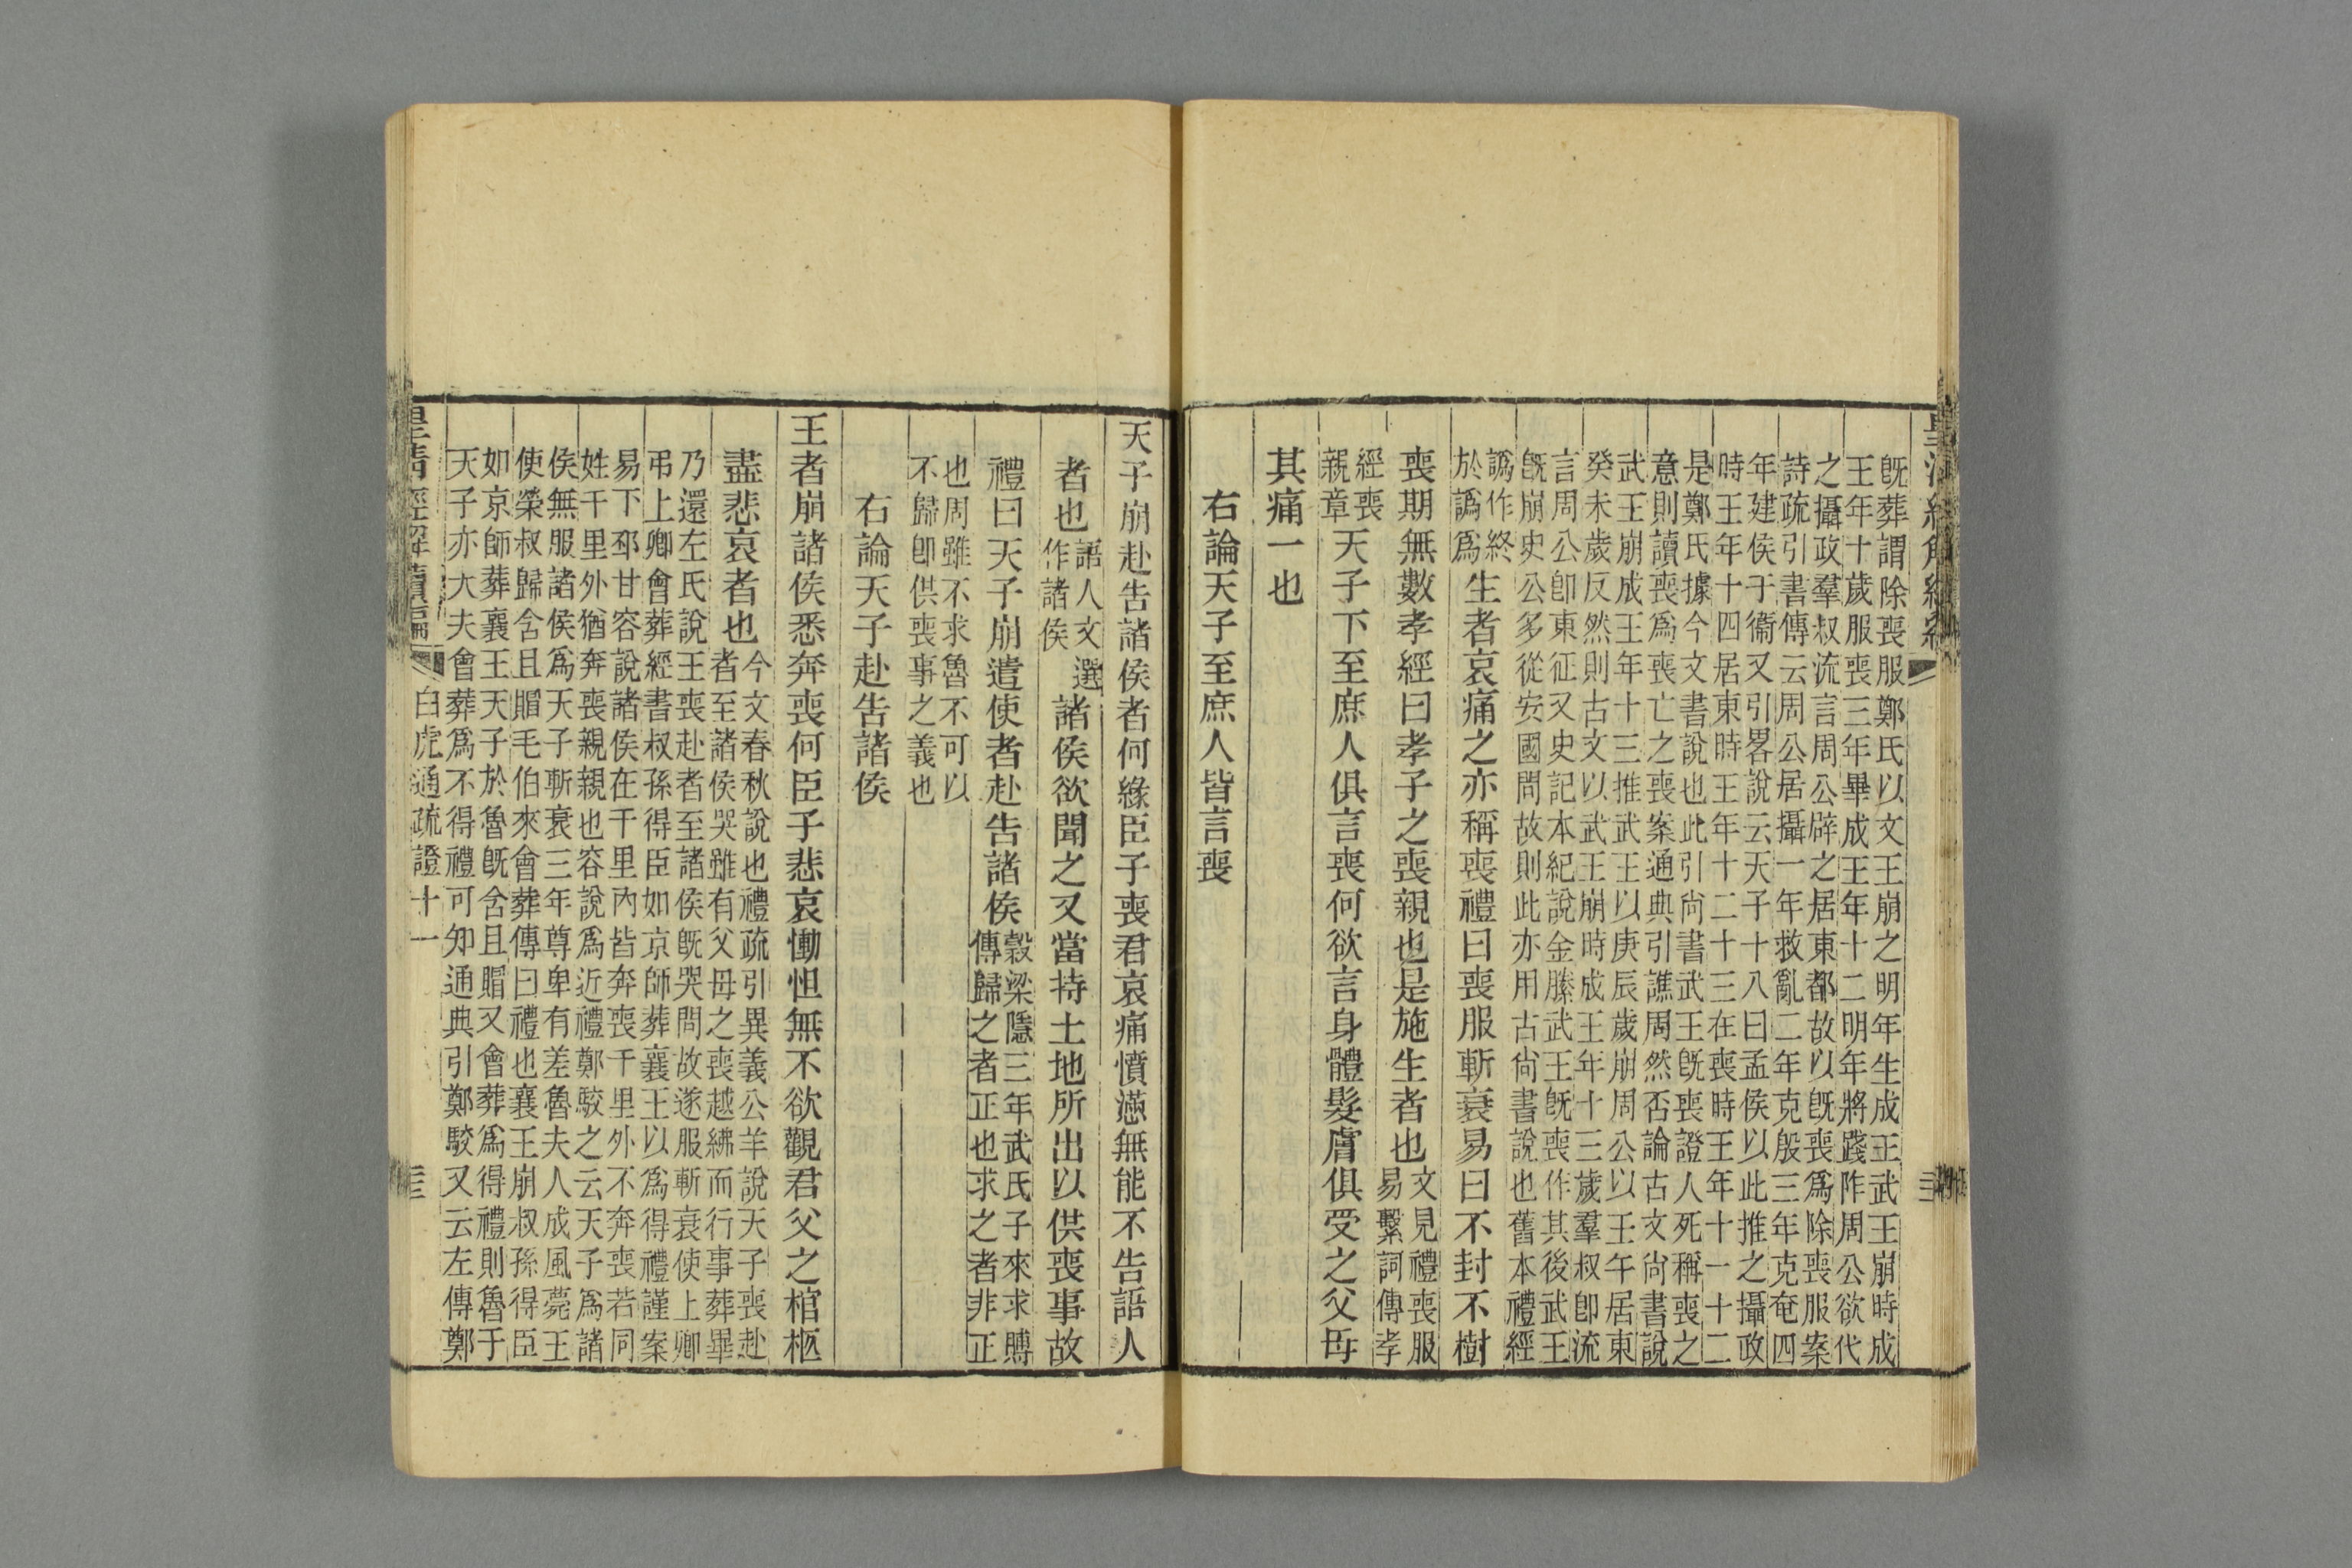 旣葬謂除喪服鄭氏以文王崩之明年生成王武王崩時成
王年十歲服喪三年畢成王年十二明年將踐阼周公欲代
之攝政羣叔流言周公辟之居東都故以旣喪爲除喪服案
詩疏引書傳云周公居攝一年救亂二年克殷三年克奄四
年建侯于衞又引畧說云天子十八曰孟侯以此推之攝政
時王年十四居東時王年十二十三在喪時王年十一十二
是鄭氏據今文書說也此引尙書武王旣喪證人死稱喪之
意則讀喪爲喪亡之喪案通典引譙周然否論古文尙書說
武王崩成王年十三推武王以庚辰歲崩周公以王午居東
癸未歲反然則古文以武王崩時成王年十三歲羣叔卽流
言周公卽東征又史記本紀說金縢武王旣喪作其後武王
旣崩史公多從安國問故則此亦用古尙書說也舊本禮經
譌作終
於譌爲
生者哀痛之亦稱喪禮曰喪服斬衰易曰不封不樹
喪期無數孝經曰孝子之喪親也是施生者也
文見禮喪服
易繫詞傳孝
經喪
親章
天子下至庶人俱言喪何欲言身體髮膚俱受之父母
其痛一也
右論天子至庶人皆言喪
天子崩赴告諸侯者何緣臣子喪君哀痛憤懣無能不告語人
者也
語人文選
作諸侯
諸侯欲聞之又當持土地所出以供喪事故
禮曰天子崩遣使者赴告諸侯
穀梁隱三年武氏子來求賻
傳歸之者正也求之者非正
也周雖不求魯不可以
不歸卽供喪事之義也
右論天子赴告諸侯
王者崩諸侯悉奔喪何臣子悲哀慟怛無不欲觀君父之棺柩
盡悲哀者也
今文春秋說也禮疏引異義公羊說天子喪赴
者至諸侯哭雖有父母之喪越紼而行事葬畢
乃還左氏說王喪赴者至諸侯旣哭問故遂服斬衰使上卿
弔上卿會葬經書叔孫得臣如京師葬襄王以爲得禮謹案
易下邳甘容說諸侯在千里內皆奔喪千里外不奔喪若同
姓千里外猶奔喪親親也容說爲近禮鄭駮之云天子爲諸
侯無服諸侯爲天子斬衰三年尊卑有差魯夫人成風薨王
使榮叔歸含且賵毛伯來會葬傳曰禮也襄王崩叔孫得臣
如京師葬襄王天子於魯旣含且賵又會葬爲得禮則魯于
天子亦大夫會葬爲不得禮可知通典引鄭駮又云左傳鄭
皇清經解續編
白虎通疏證十一